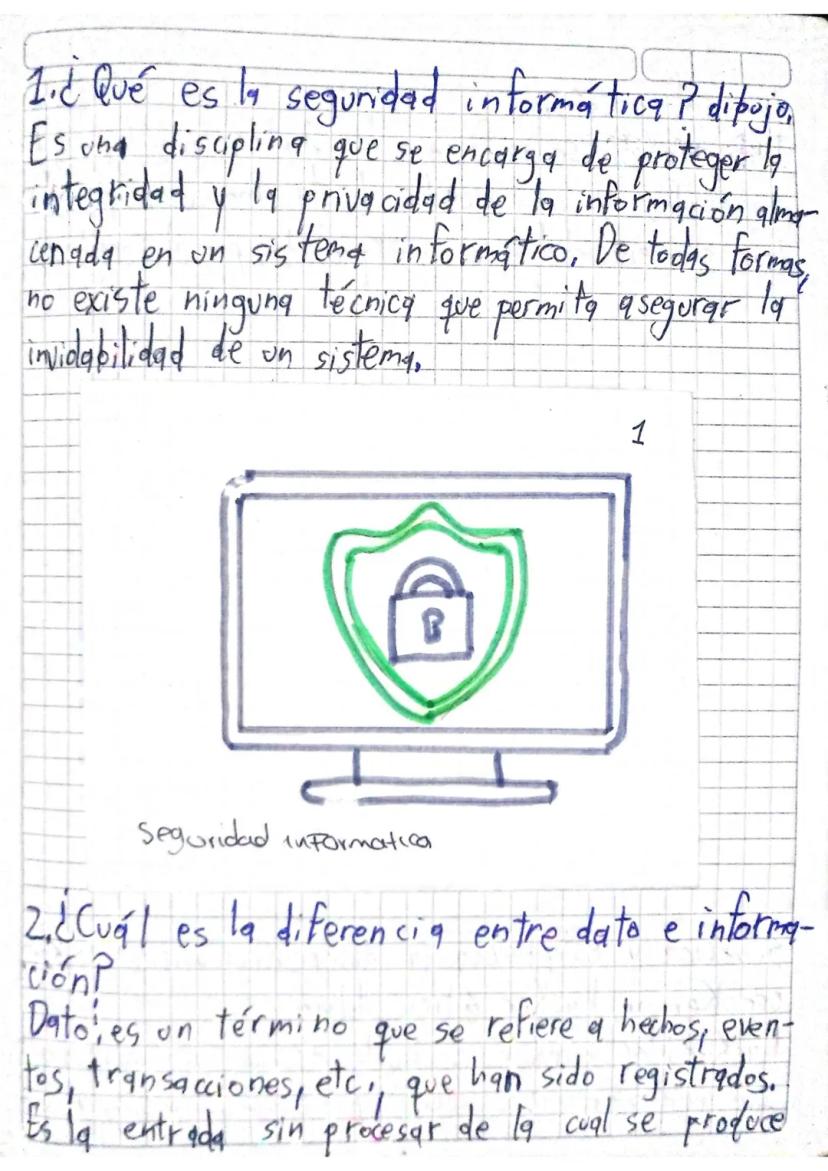 1.¿Qué es la seguridad informática? dibujo.
Es una disciplina que se encarga de proteger la
integridad y la privacidad de la información alma-
cenada en un sistema informático. De todas formas,
no existe ninguna técnica que permita asegurar la
inviolabilidad de un sistema.
1
Seguridad informatica
2.¿Cuál es la diferencia entre dato e informa-
ción?
Dato: es un término que se refiere a hechos, even-
tos, transacciones, etc., que han sido registrados.
Es la entrada sin procesar de la cual se produce